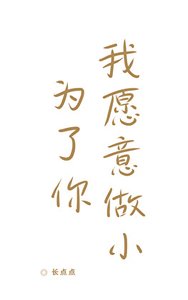 我愿意做小
为了你
长点点